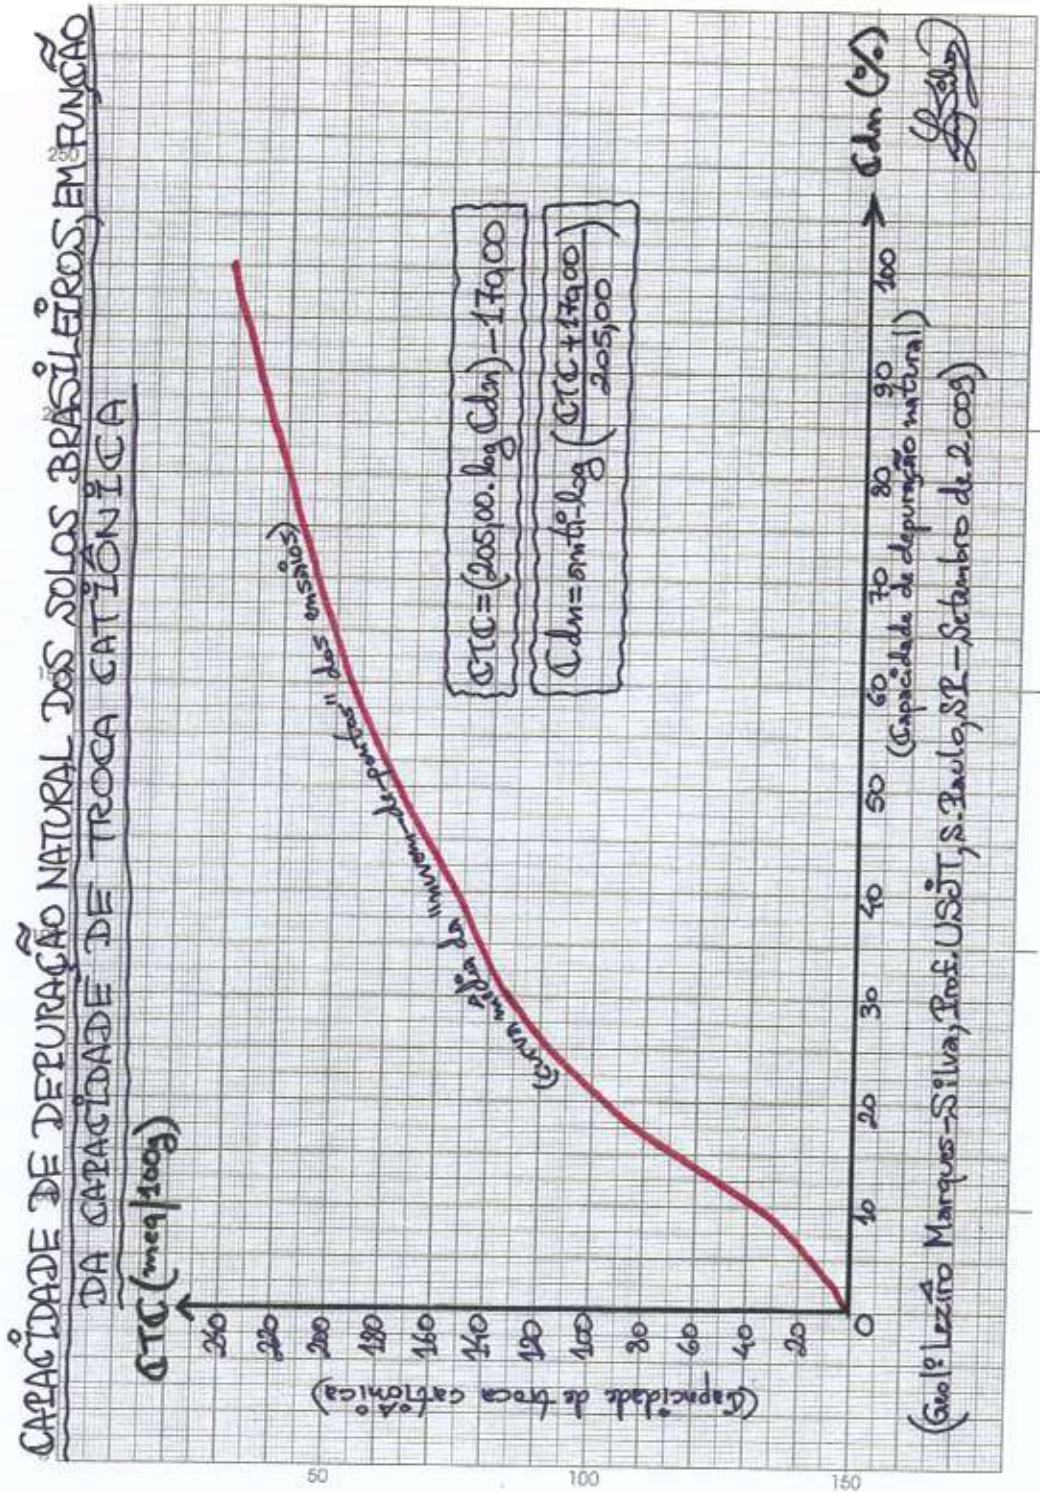 CAPACIDADE DE DEPURAÇÃO NATURAL DOS SOLOS BRASILEIROS, EM FUNÇÃO
DA CAPACIDADE DE TROCA CATIÔNICA
CTC (meq/100g)
240
220
200
180
160
140
120
100
80
60
40
20
0
(Capacidade de troca catiônica)
(curva média da "nuvem-de-pontos" dos ensaios)
CTC=(205,00.log Cdn)-179,00
Cdn=anti-log (CTC+179,00
205,00)
10
20
30
40
50
60
70
80
90
100
Cdn (%)
(Capacidade de depuração natural)
(Geolº Lezíro Marques-Silva, Prof. USJT, S. Paulo, SP-Setembro de 2.009)
50
100
150
250